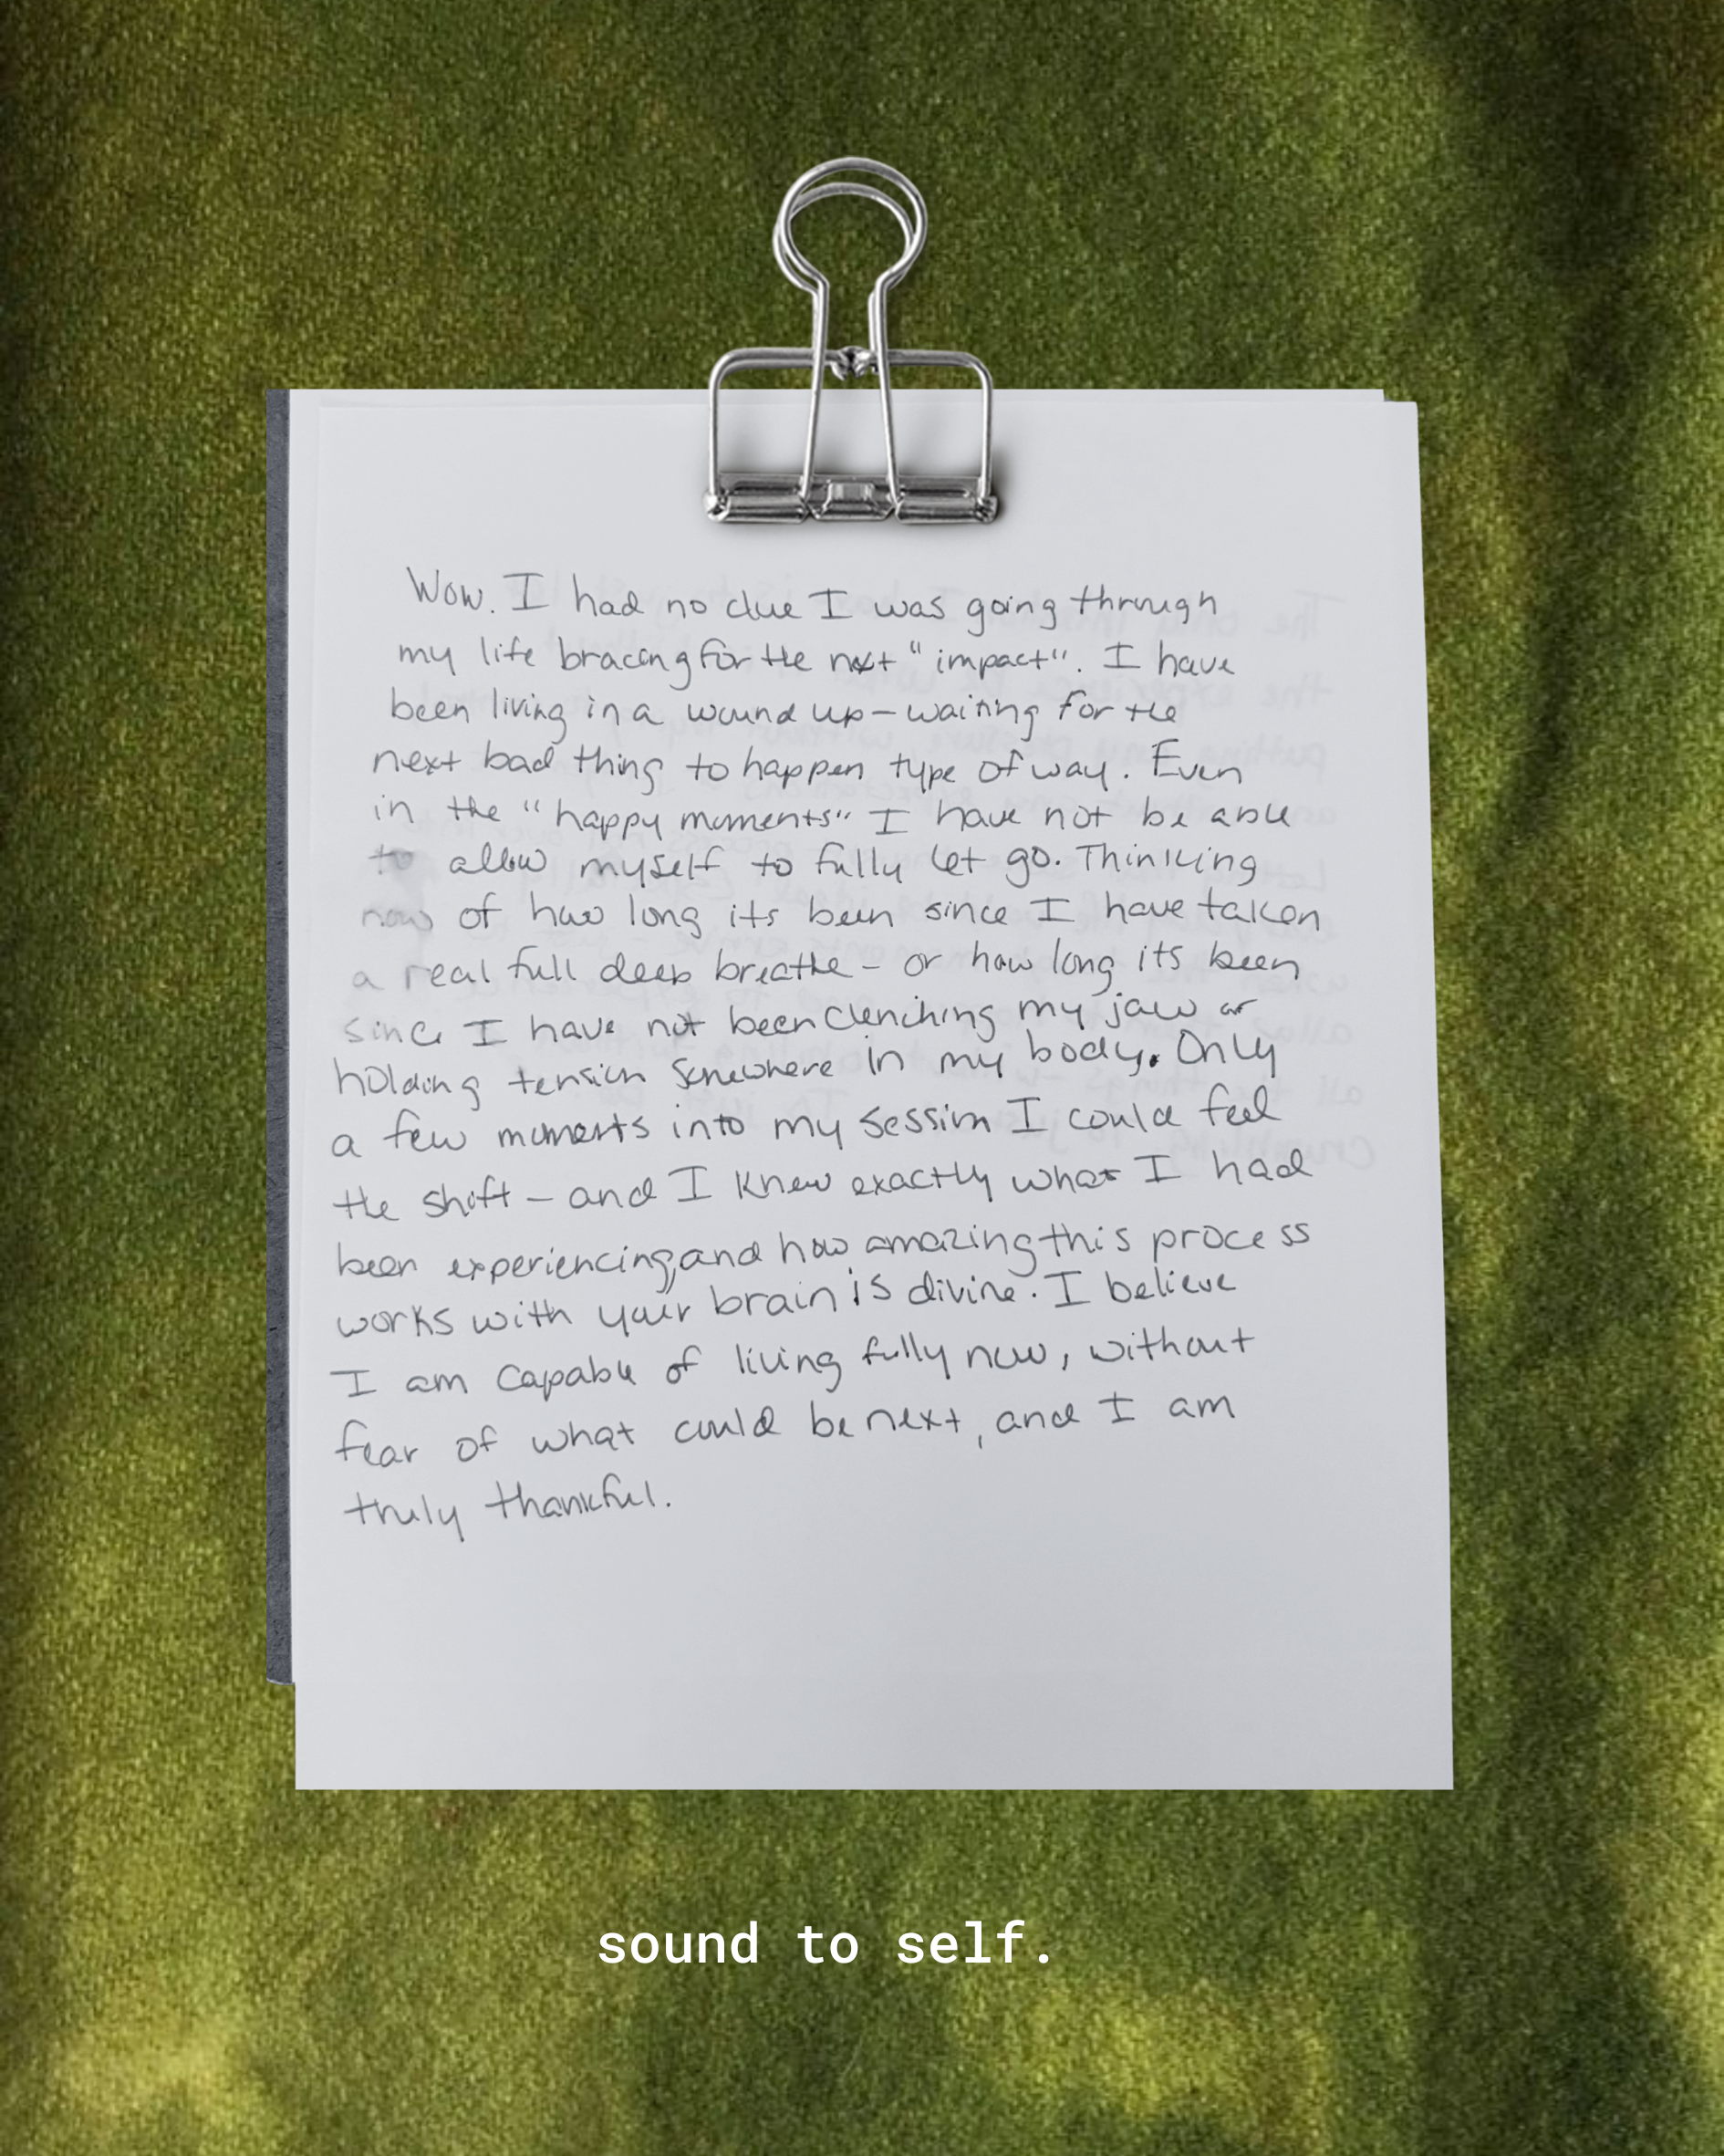 Wow. I had no clue I was going through
my life bracing for the next "impact". I have
been living in a wound up - waiting for the
next bad thing to happen type of way. Even
in the "happy moments" I have not be able
to allow myself to fully let go. Thinking
now of how long its been since I have taken
a real full deep breathe - or how long its been
since I have not been clenching my jaw or
holding tension somewhere in my body. Only
a few moments into my session I could feel
the shift - and I knew exactly what I had
been experiencing, and how amazing this process
works with your brain is divine. I believe
I am capable of living fully now, without
fear of what could be next, and I am
truly thankful.
sound to self.